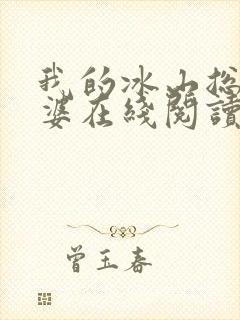 我的冰山总
婆在线阅读
曾玉春